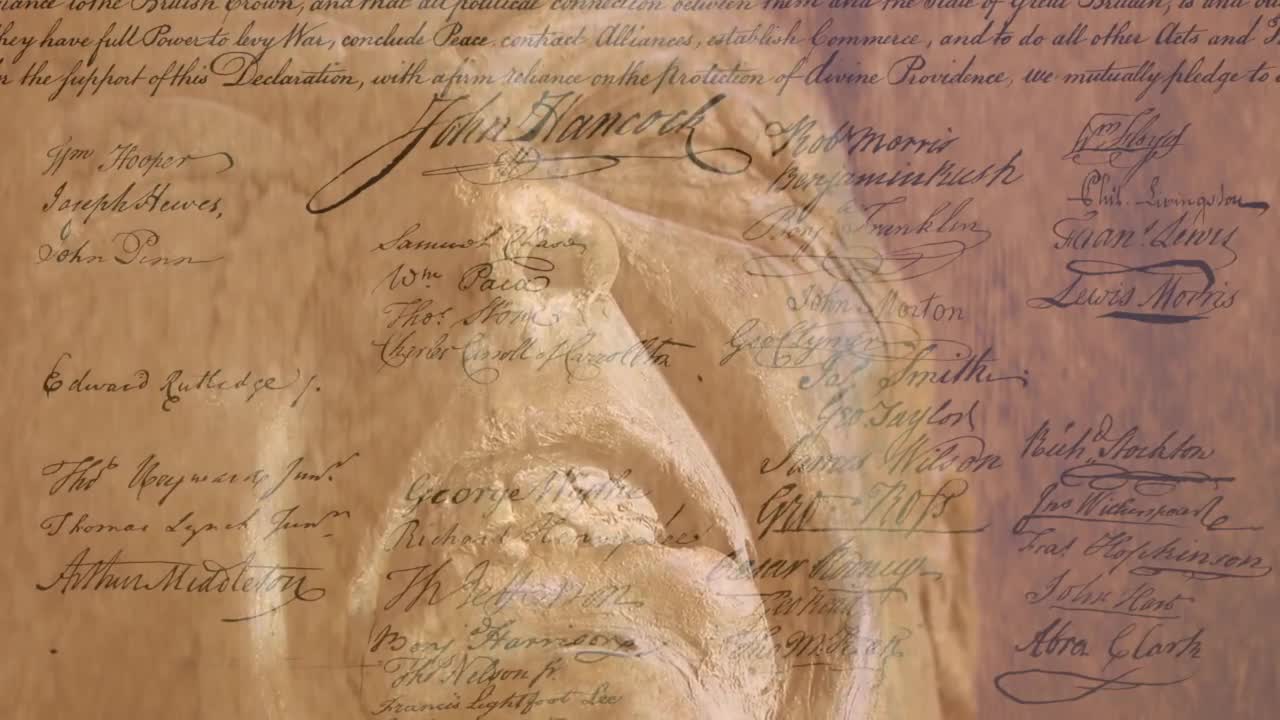 to the British Crown, and that all political connection between them and the State of Great Britain, is and
they have full Power to levy War, conclude Peace, contract Alliances, establish Commerce, and to do all other Acts and
the support of this Declaration, with a firm reliance on the protection of divine Providence, we mutually pledge to
John Hancock
Wm Hooper
Joseph Hewes,
John Penn
Edward Rutledge
Thos Heyward Junr.
Thomas Lynch Junr.
Arthur Middleton
Samuel Chase
Wm. Paca
Thos. Stone
Charles Carroll of Carrollton
George Wythe
Richard Henry Lee
Th Jefferson
Benj Harrison
Thos Nelson jr.
Francis Lightfoot Lee
Robt Morris
Benjamin Rush
Benj. Franklin
John Morton
Geo Clymer
Jas. Smith
Geo Taylor
James Wilson
Geo. Ross
Caesar Rodney
Geo Read
Tho M. Kean
Wm Floyd
Phil. Livingston
Frans. Lewis
Lewis Morris
Richd. Stockton
Jno Witherspoon
Fras. Hopkinson
John Hart
Abra Clark